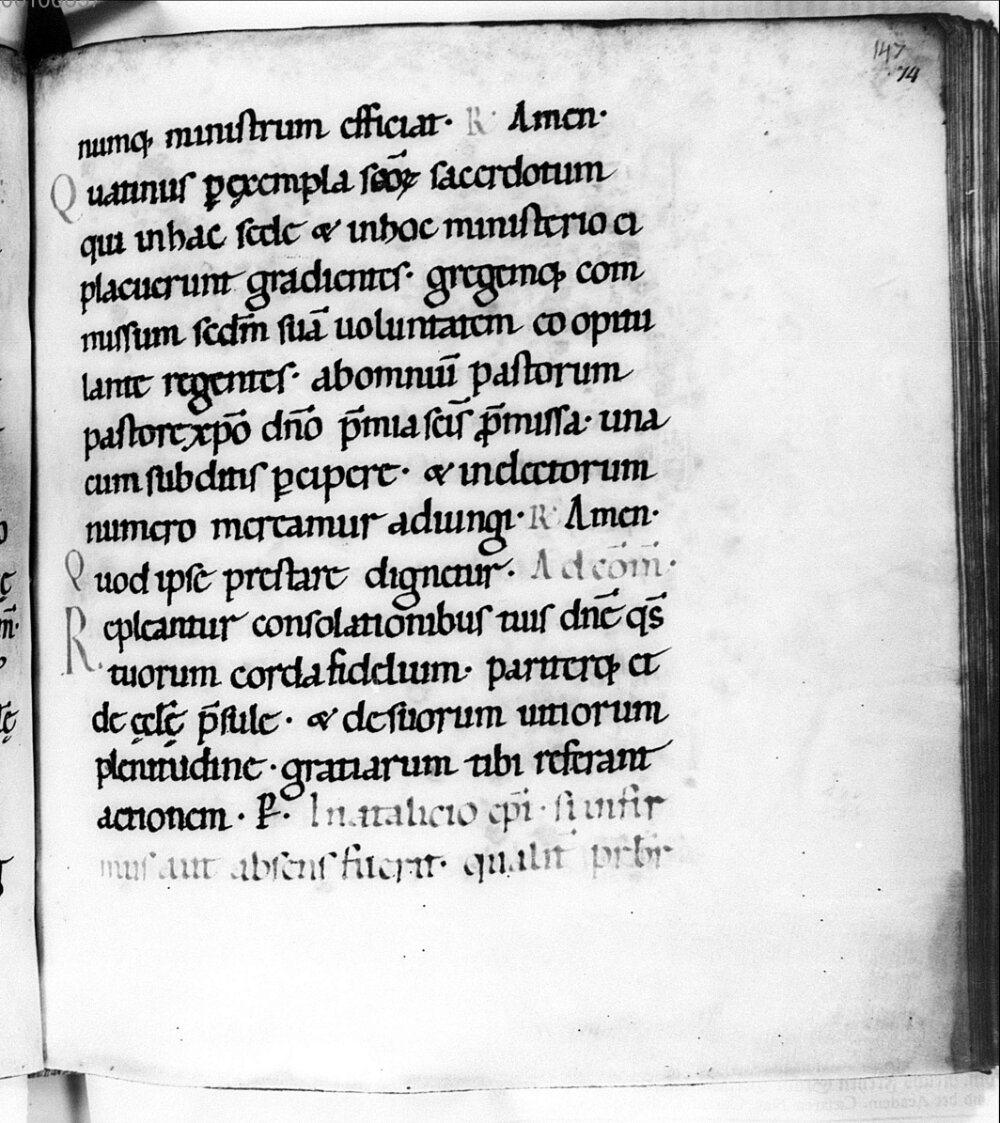 147
74
numq; miniſtrum efficiat· R· Amen·
Quatinus ꝑ exempla ſcōꝝ ſacerdotum
qui inhac ſede & inhoc miniſterio ei
placuerunt gradientes· gregemq; com
miſſum ſecdm̄ ſuā uoluntatem cooptitu
lante regentes· abomniū paſtorum
paſtore xp̄o dn̄o p̄mia ſcīſ p̄miſſa· una
cum ſubditiſ ꝑcipere· & inelectorum
numero mereamur adiungi· R· Amen·
Quod ipſe preſtare dignetur· Ad cōm̄·
Repleantur conſolationibuſ tuiſ dn̄e qs̄
tuorum corda fidelium· pariterq; et
de ęcłę p̄ſule· & deſuorum uotorum
plenitudine· gratiarum tibi referant
actionem· P̄· Innatalicio ep̄i· ſi infir
muſ aut abſenſ fuerit· qualit̄ prb̄r